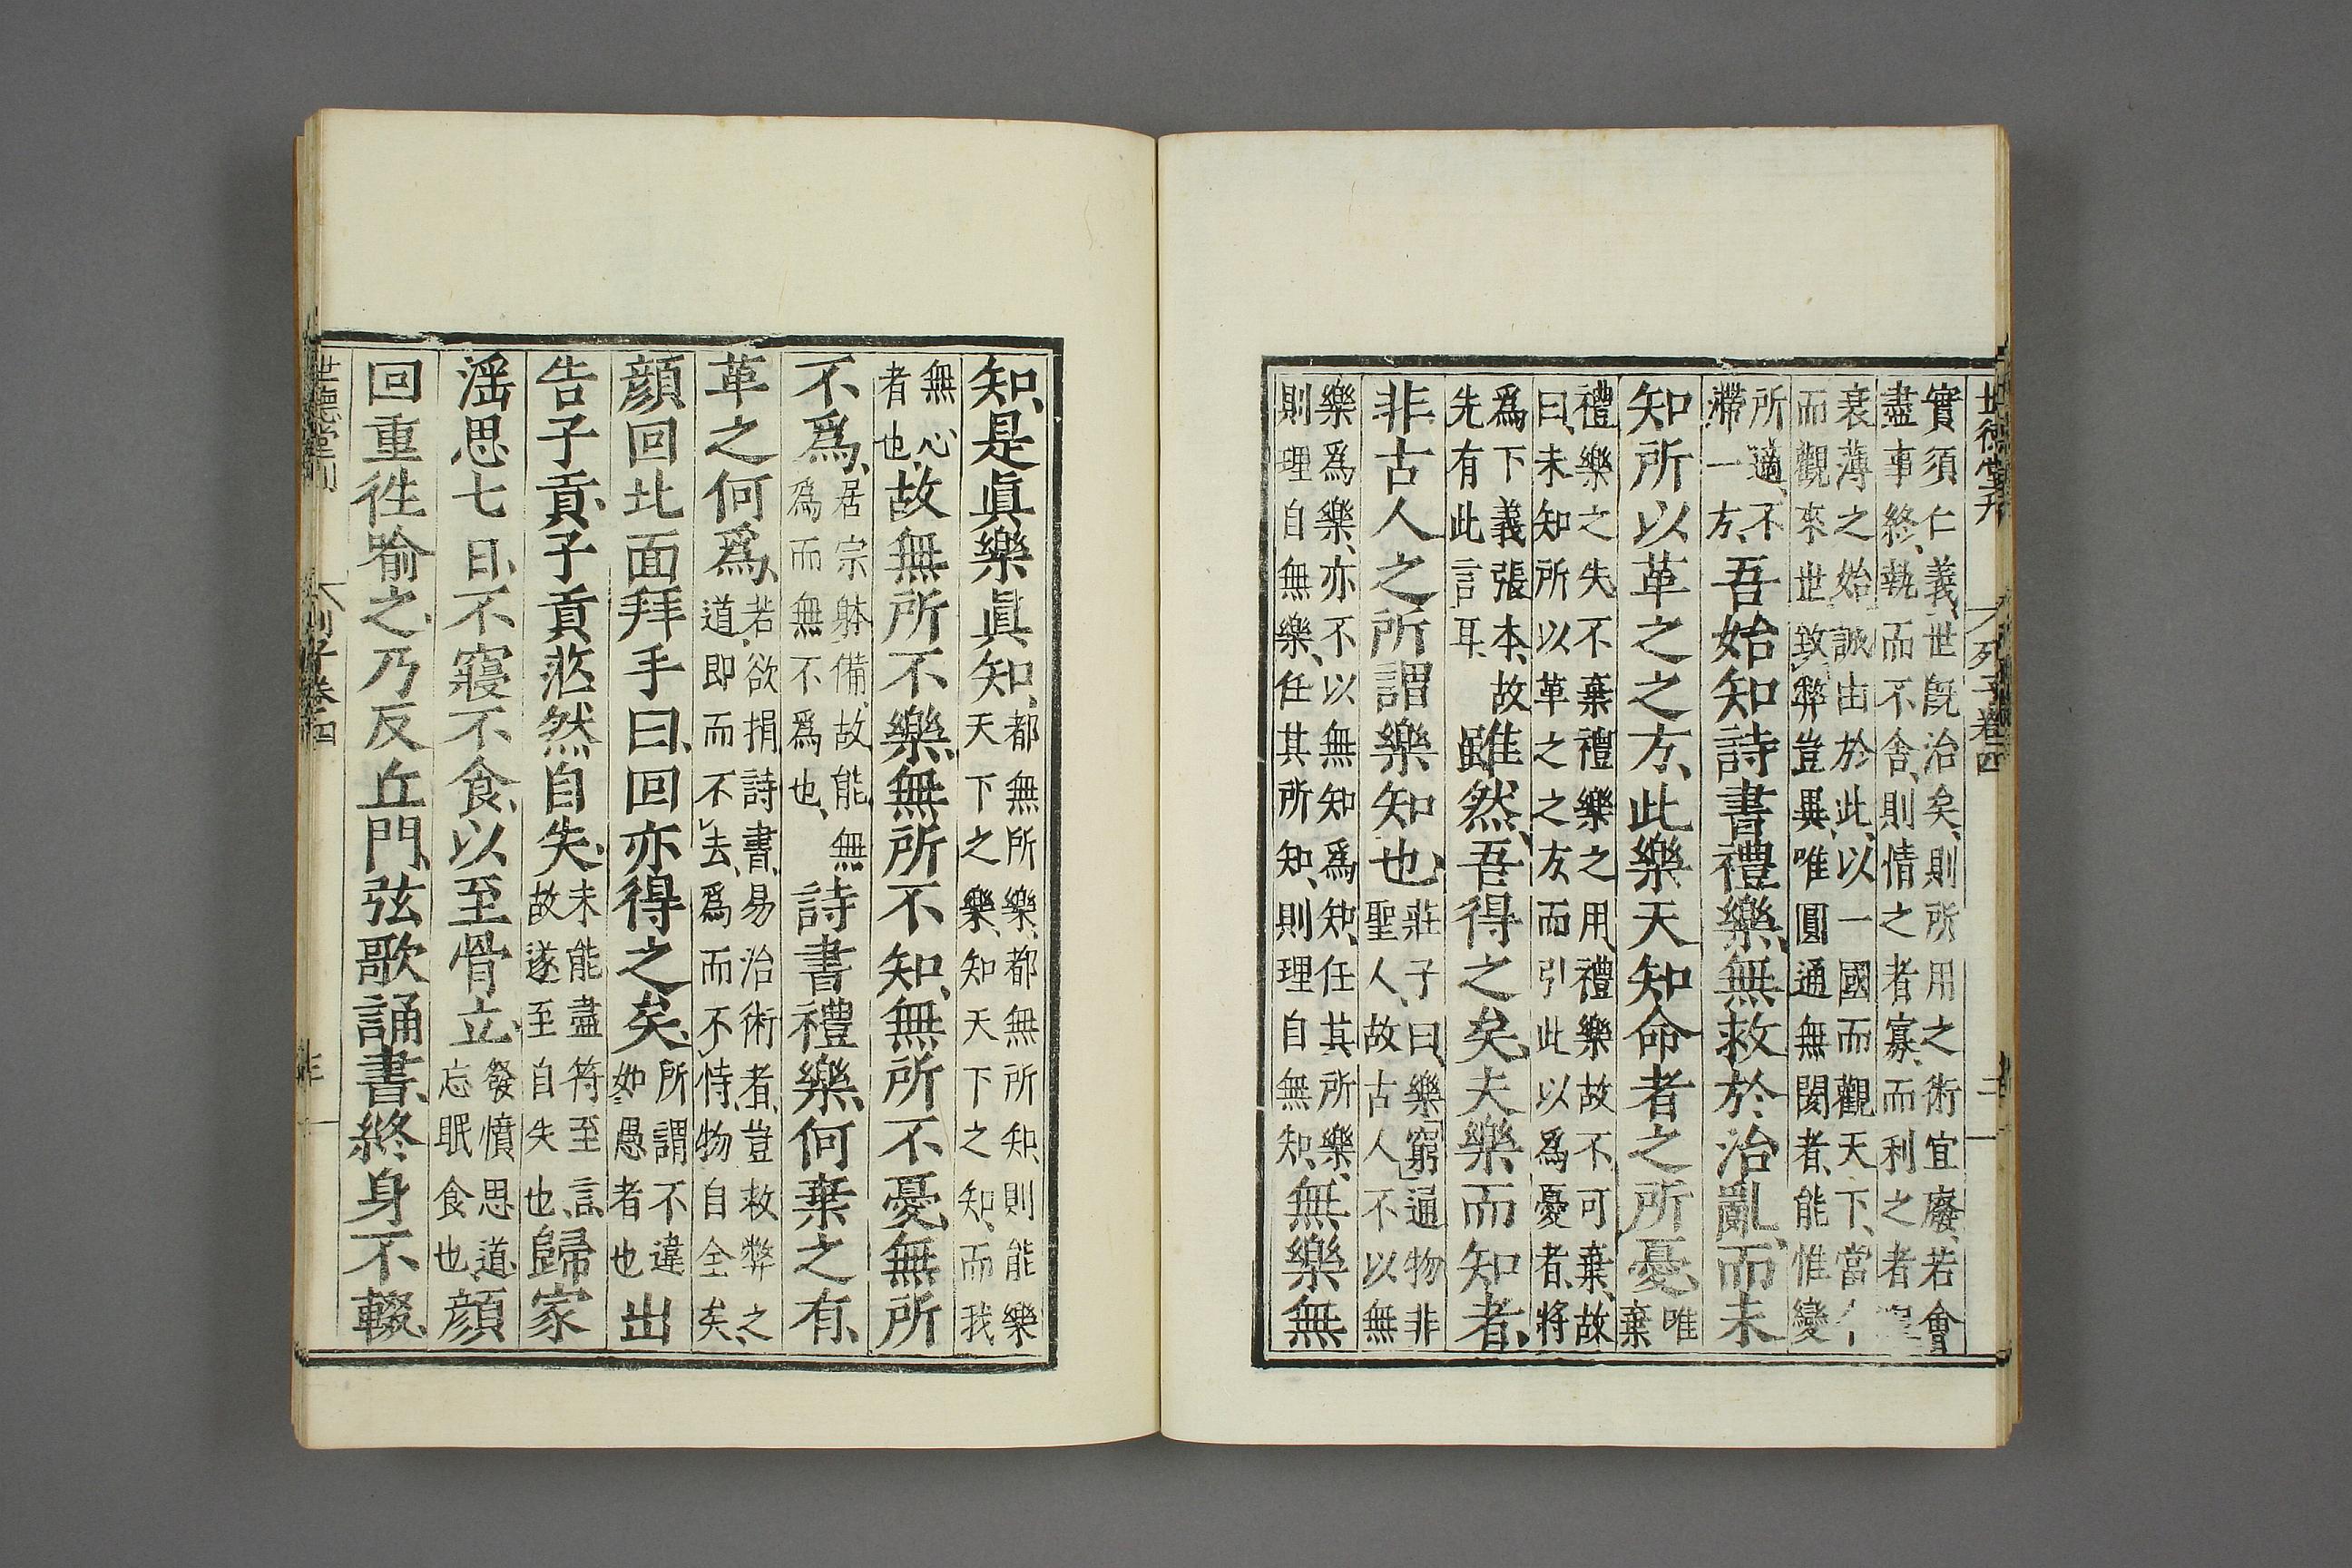 世德堂刊　列子卷四　二
實須仁義、世旣治矣、則所用之術宜廢、若會
盡事終、執而不舍、則情之者寡、而利之者
衰薄之始、誠由於此、以一國而觀天下、當
而觀來世、致弊豈異、唯圓通無閡者、能惟變
所適、不滯一方、吾始知詩書禮樂、無救於治亂、而未
知所以革之之方、此樂天知命者之所憂唯棄
禮樂之失、不棄禮樂之用、禮樂故不可棄、故
曰、未知所以革之之方、而引此以爲憂者、將
爲下義張本、故先有此言耳、雖然、吾得之矣、夫樂而知者、
非古人之所謂樂知也、莊子曰、樂窮通物非聖人、故古人不以無
樂爲樂、亦不以無知爲知、任其所樂、則理自無樂、任其所知、則理自無知、無樂無
知、是眞樂眞知、都無所樂、都無所知、則能樂天下之樂、知天下之知、而我
無心者也、故無所不樂、無所不知、無所不憂、無所
不爲、居宗躰備、故能無爲而無不爲也、詩書禮樂、何棄之有、
革之何爲、若欲捐詩書、易治術者、豈救弊之道、即而不去、爲而不恃、物自全矣、
顔回北面拜手曰、回亦得之矣、所謂不違如愚者也出
告子貢、子貢茫然自失、未能盡符至言、故遂至自失也、歸家
滛思七日、不寢不食、以至骨立、發憤思道、忘眠食也、顔
回重徃喻之、乃反丘門、弦歌誦書、終身不輟、
世德堂刊　列子卷四